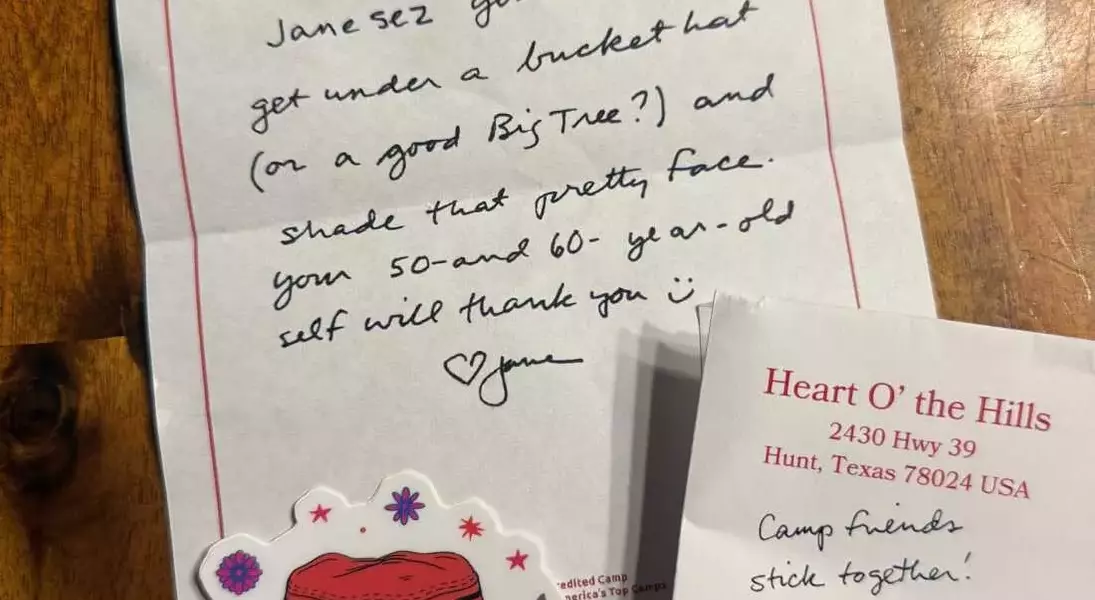 Jane sez
get under a bucket hat
(or a good Big Tree?) and
shade that pretty face.
your 50-and 60- year-old
self will thank you
♡ Jane
edited Camp
merica's Top Camps
Heart O' the Hills
2430 Hwy 39
Hunt, Texas 78024 USA
Camp friends
stick together!